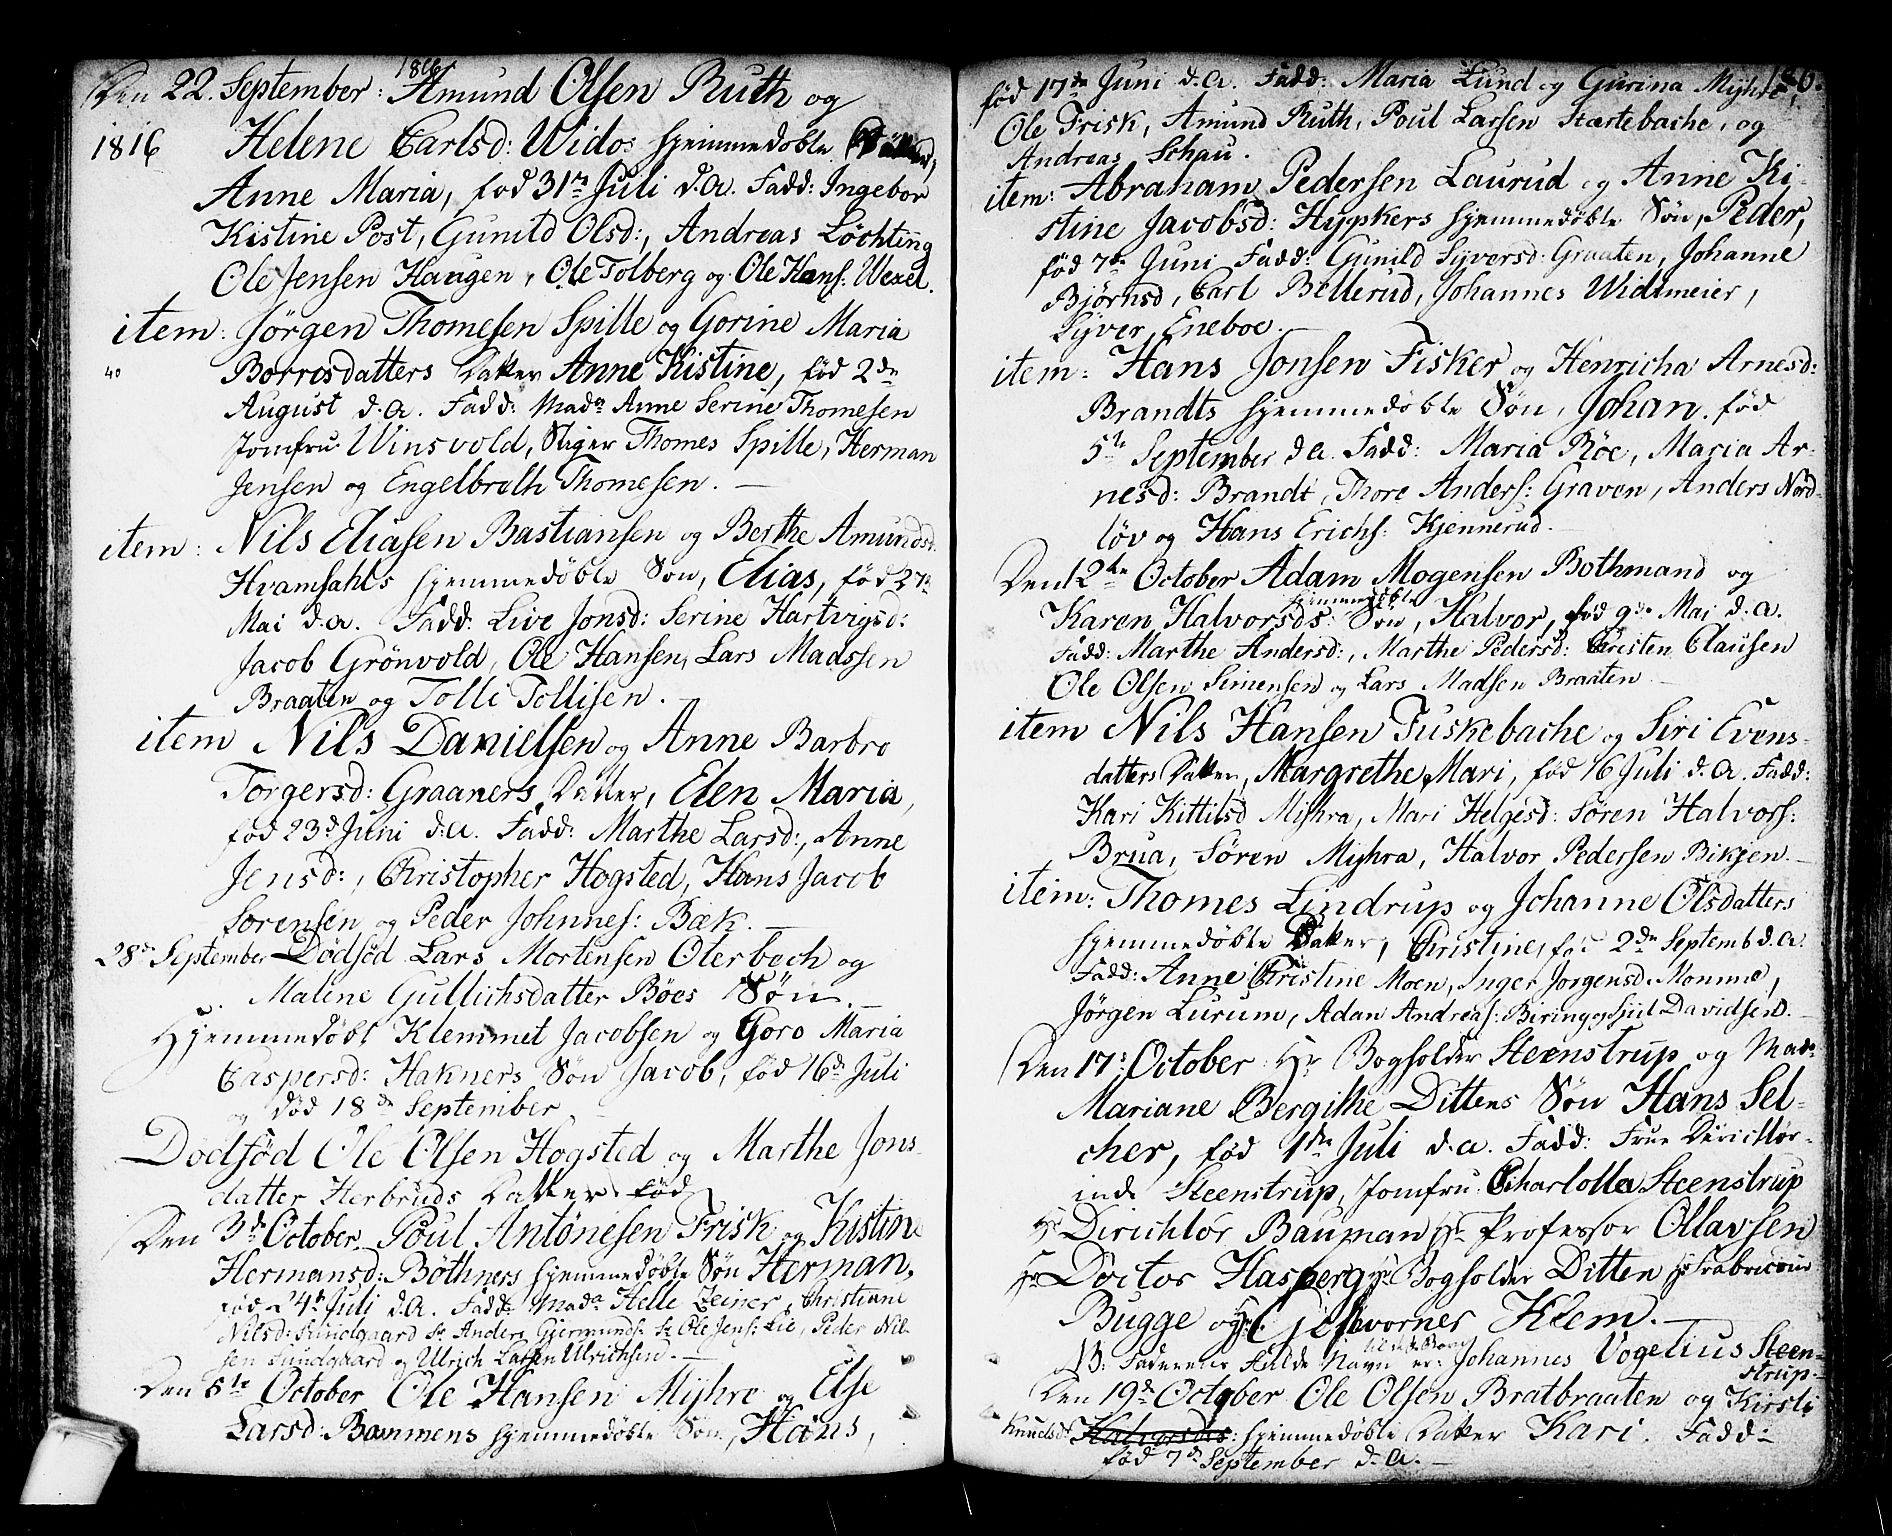 1816
Den 22. September: Amund Olsen Ruth og
1816 Helene Carlsd: Widos hjemmedøbte
Anne Maria, fød 31te Juli d.A. Fadd: Ingebor
Kistine Post, Gunild Olsd:, Andreas Løchting
Ole Jensen Haugen, Ole Tolberg og Ole Hans: Wexel.
item: Jørgen Thomesen Spille og Gorine Maria
40 Borresdatters Datter Anne Kistine, fød 2de
August d.A. Fadd: Mada Anne Serine Thomesen
Jomfru Winsvold, Stiger Thomes Spille, Herman
Jensen og Engelbrath Thomesen.
item: Nils Eliasen Bastiansen og Berthe Amundsd:
Hvamsahls hjemmedøbte Søn, Elias, fød 27de
Mai d.A. Fadd: Live Jonsd: Serine Hartvigsd:
Jacob Grönvold, Ole Hansen, Lars Madssen
Braaten og Tolle Tollisen.
item Nils Danielsen og Anne Barbro
Torgersd: Graaners Datter, Elen Maria,
fød 23d Juni d.A. Fadd: Marthe Larsd:, Anne
Jensd:, Christopher Hogsted, Hans Jacob
Sørensen og Peder Johnnes: Bæk.
28de September Dødfød Lars Mortensen Oterbech og
Maline Gullichsdatter Böes Søn.
Hjemmedøbt Klemmet Jacobsen og Goro Maria
Caspersd: Hakners Søn Jacob, fød 16de Juli
og død 18de September
Dødfød Ole Olsen Hogsted og Marthe Jons-
datter Herbruds Datter fød
Den 3de October Poul Antönesen Frisk og Kistine
Hermansd: Böthners hjemmedøbte Søn Herman,
fød 24de Juli d.A. Fadd: Mada Helle Zeiner, Christiane
Nilsd: Sundgaard Sr Anders Gjermunds: Sr Ole Jens: Lie, Peder Nil-
sen Sundgaard og Ulrich Larsen Ulrichsen.
Den 5te October Ole Hansen Myhre og Else
Larsd: Bammens hjemmedøbte Søn, Hans,
fød 17de Juni d.A. Fadd: Maria Lund og Gurina Myhre,
Ole Frisk, Amund Ruth, Poul Larsen Stærtebache, og
Andreas Schau.
item: Abraham Pedersen Laurud og Anne Ki-
stine Jacobsd: Hypkers hjemmedøbte Søn, Peder,
fød 7de Juni Fadd: Gunild Syversd: Graaten, Johanne
Bjørnsd, Carl Bellerud, Johannes Widtmeier,
Syver Eneboe.
item: Hans Jonsen Fisker og Henricha Arnesd:
Brandts hjemmedøbte Søn, Johan. fød
5te September d.A. Fadd: Maria Röe, Maria Ar-
nesd: Brandt, Thore Anders: Graven, Anders Nord-
løv og Hans Erichs: Kjennerud.
Den 12te October Adam Mogensen Bothmand og
Karen Halvorsds hjemmedøbte Søn, Halvor, fød 9de Mai d.A.
Fadd: Marthe Andersd:, Marthe Pedersd: Christen Clausen
Ole Olsen Simensen og Lars Madsen Braaten
item Nils Hansen Fuskebache og Siri Evens-
datters Datter, Margrethe Mari, fød 16 Juli d.A. Fadd:
Kari Kittilsd Myhra, Mari Helgesd: Søren Halvors:
Brua, Søren Myhra, Halvor Pedersen Bikjen.
item: Thomes Lindrup og Johanne Olsdatters
hjemmedøbte Datter, Christine, fød 2de Septemb d.A.
Fadd: Anne Christine Moen, Inger Jorgensd. Momme,
Jørgen Lurum, Adan Andreas: Biring og Sjul Davidsen.
Den 17: October Hr Bogholder Steenstrup og Mada
Mariane Bergithe Dittens Søn Hans Sel-
cher, fød 1de Juli d.A. Fadd: Frue Dirichtör-
inde Steenstrup, Jomfru Charlotta Steenstrup
Hr Dirichtör Bauman Hr Professor Ollavsen
Hr Doctor Hasberg, Hr Bogholder Ditten Hr Fabriceur
Bugge og Hr Gesvorner Klem.
NB: Faderens fulde Navn er: Johannes Vogelius Steen-
strup.
Den 19de October Ole Olsen Bratbraaten og Kirsti
Knudsds Halvorsdts: hjemmedøbte Datter Kari. Fadd:
fød 7de September d.A.